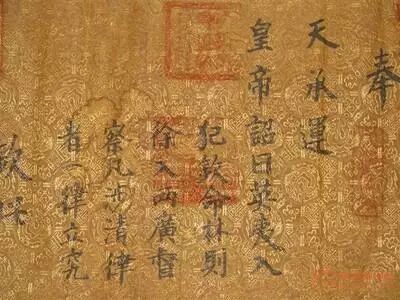 奉
天承運
皇帝詔曰英夷入
犯欽命林則
徐入兩廣督
察凡涉清律
者一律立究
欽此